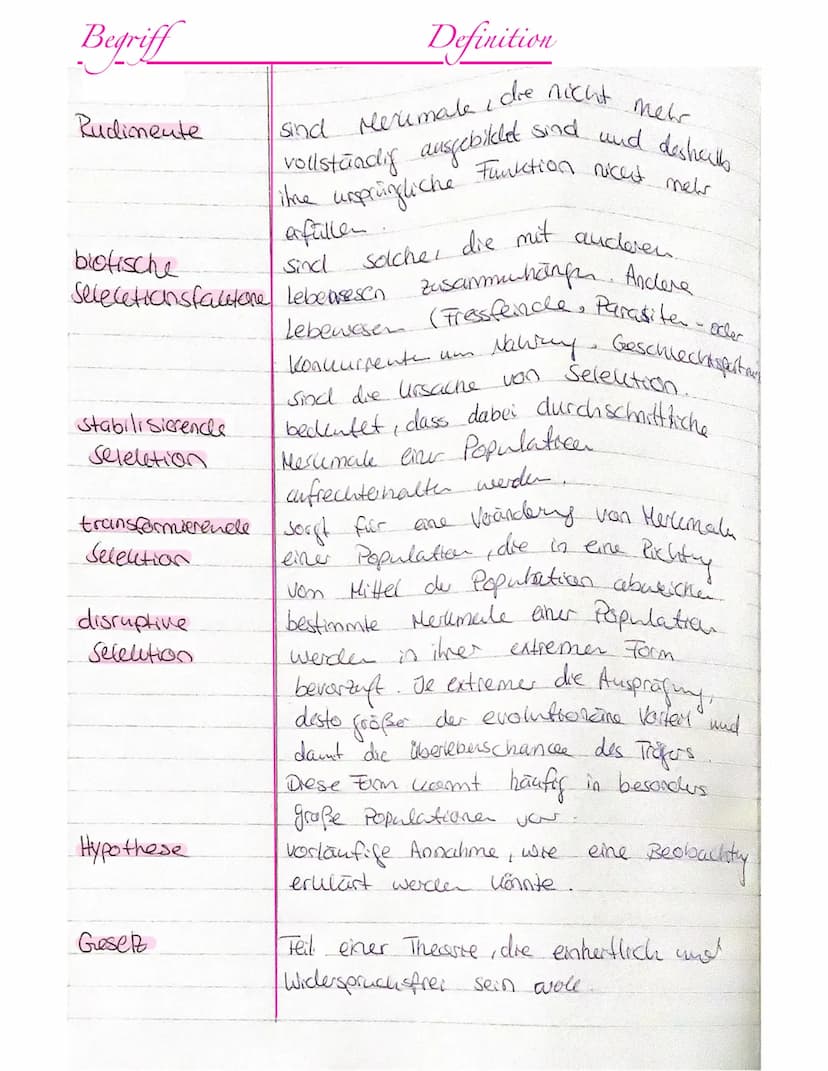 Begriff Definition
Rudimente sind Merkmale, die nicht mehr
vollständig ausgebildet sind und deshalb
ihre ursprüngliche Funktion nicht mehr
erfüllen.
biotische sind solche, die mit anderen
Selektionsfaktoren Lebewesen zusammenhängen. Andere
Lebewesen (Fressfeinde, Parasiten- oder
Konkurrenten um Nahrung, Geschlechtspartner
sind die Ursache von Selektion.
stabilisierende bedeutet, dass dabei durchschnittliche
Selektion Merkmale einer Population
aufrechterhalten werden.
transformierende sorgt für eine Veränderung von Merkmalen
Selektion einer Population, die in eine Richtung
vom Mittel der Population abweichen
disruptive bestimmte Merkmale einer Population
Selektion werden in ihrer extremen Form
bevorzugt. Je extremer die Ausprägung,
desto größer der evolutionäre Vorteil und
damit die Überlebenschance des Trägers.
Diese Form kommt häufig in besonders
große Populationen vor.
Hypothese vorläufige Annahme, wie eine Beobachtung
erklärt werden könnte.
Gesetz Teil einer Theorie, die einheitlich und
Widerspruchsfrei sein